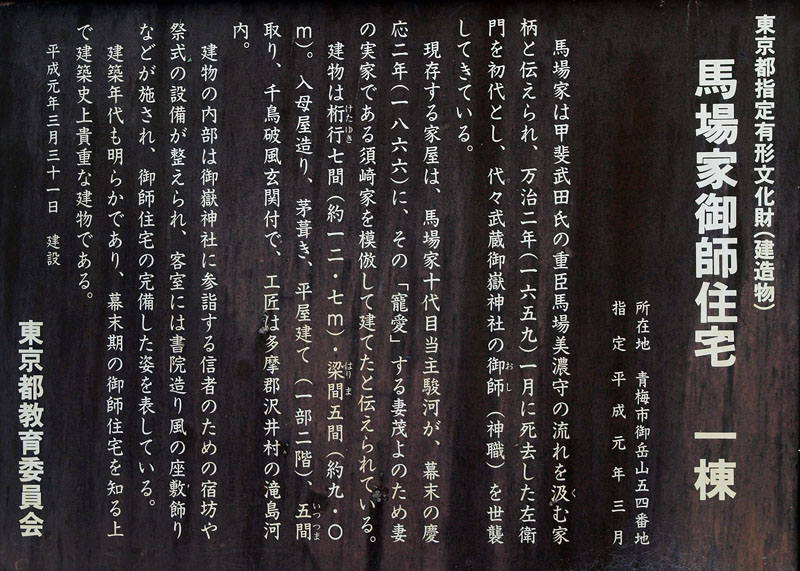 東京都指定有形文化財(建造物)
馬場家御師住宅 一棟
所在地 青梅市御岳山五四番地
指定 平成元年三月
馬場家は甲斐武田氏の重臣馬場美濃守の流れを汲む家
柄と伝えられ、万治二年(一六五九)一月に死去した左衛
門を初代とし、代々武蔵御嶽神社の御師(神職)を世襲
してきている。
現存する家屋は、馬場家十代目当主駿河が、幕末の慶
応二年(一八六六)に、その「寵愛」する妻茂よのため妻
の実家である須崎家を模倣して建てたと伝えられている。
建物は桁行七間(約一二・七m)・梁間五間(約九・〇
m)。入母屋造り、茅葺き、平屋建て(一部二階)、五間
取り、千鳥破風玄関付で、工匠は多摩郡沢井村の滝島河
内。
建物の内部は御嶽神社に参詣する信者のための宿坊や
祭式の設備が整えられ、客室には書院造り風の座敷飾り
などが施され、御師住宅の完備した姿を表している。
建築年代も明らかであり、幕末期の御師住宅を知る上
で建築史上貴重な建物である。
平成元年三月三十一日 建設
東京都教育委員会